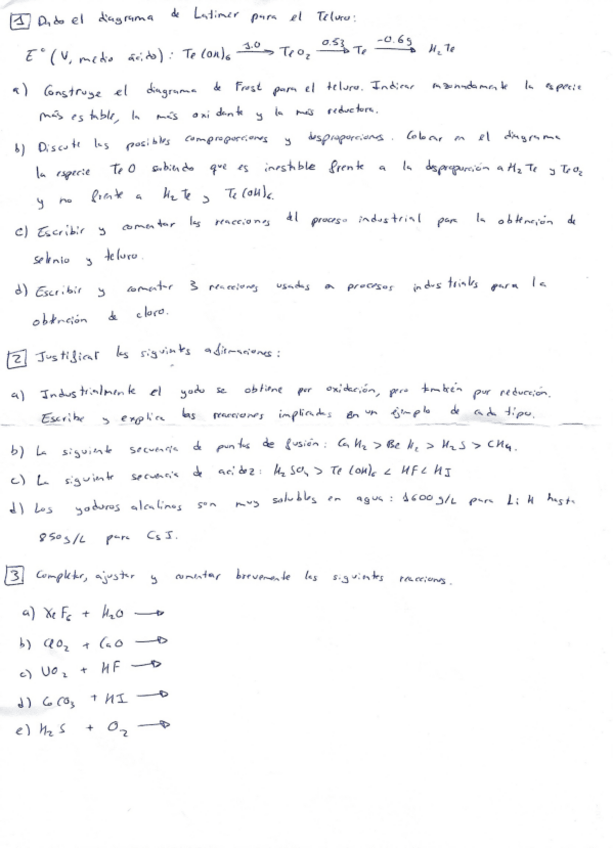 1 Dado el diagrama de Latimer para el Teluro:
E° (V, medio ácido): Te(OH)6 —1.0→ TeO2 —0.53→ Te —-0.69→ H2Te
a) Construye el diagrama de Frost para el teluro. Indicar razonadamente la especie
más estable, la más oxidante y la más reductora.
b) Discute las posibles comproporciones y desproporciones. Colocar en el diagrama
la especie TeO sabiendo que es inestable frente a la desproporción a H2Te y TeO2
y no frente a H2Te y Te(OH)6.
c) Escribir y comentar las reacciones del proceso industrial para la obtención de
selenio y teluro.
d) Escribir y comentar 3 reacciones usadas en procesos industriales para la
obtención de cloro.
2 Justificar las siguientes afirmaciones:
a) Industrialmente el yodo se obtiene por oxidación, pero también por reducción.
Escribe y explica las reacciones implicadas en un ejemplo de cada tipo.
b) La siguiente secuencia de puntos de fusión: CaH2 > BeH2 > H2S > CH4.
c) La siguiente secuencia de acidez: H2SO4 > Te(OH)6 < HF < HI
d) Los yoduros alcalinos son muy solubles en agua: 1600 g/L para Li H hasta
850 g/L para CsI.
3 Completar, ajustar y comentar brevemente las siguientes reacciones.
a) XeF6 + H2O →
b) + CaO →
c) UO2 + HF →
d) + HI →
e) H2S + O2 →